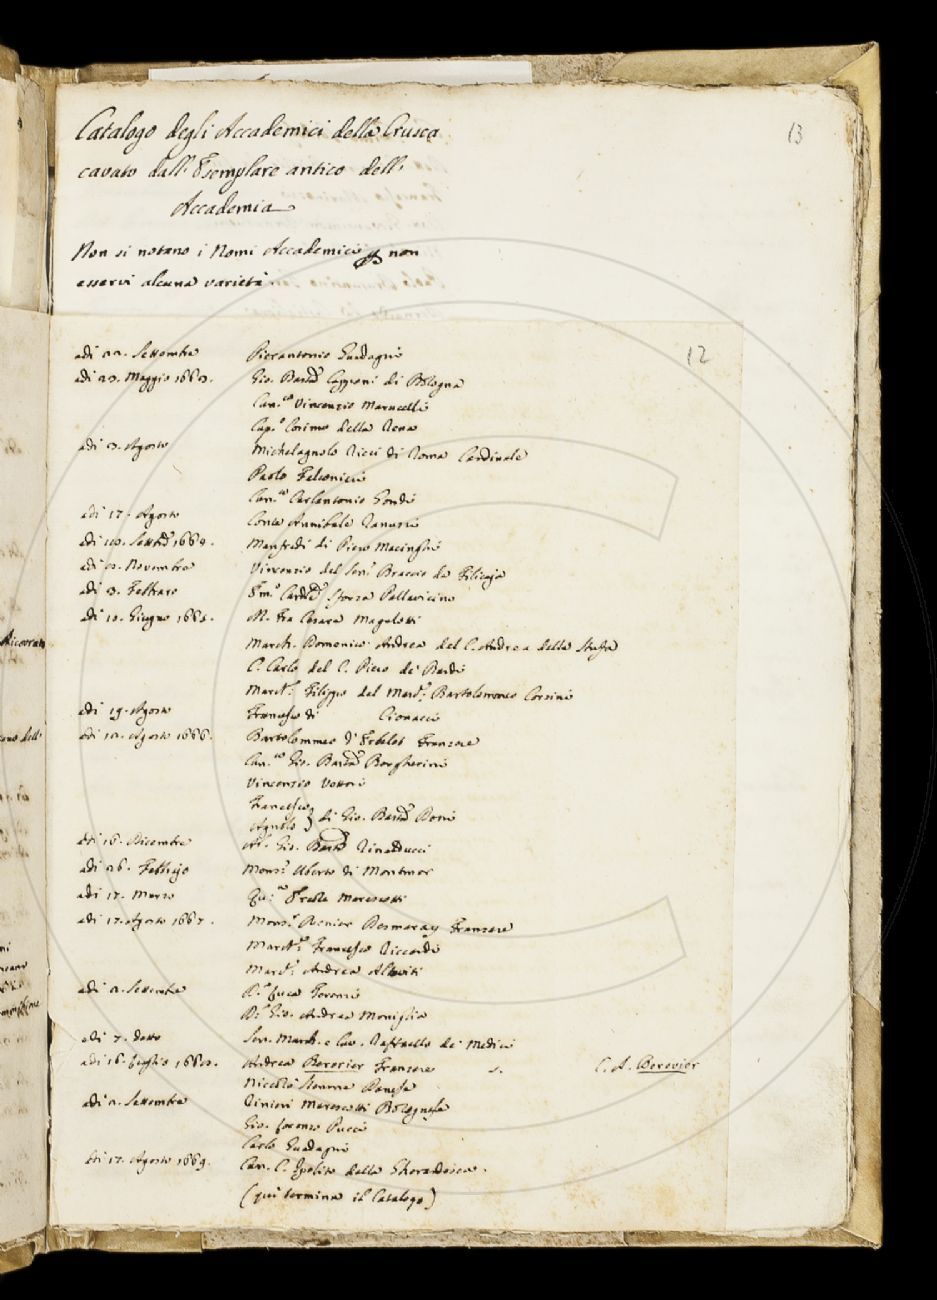 13
Catalogo degli Accademici della Crusca
cavato dall' Esemplare antico dell'
Accademia
Non si notano i Nomi Accademici per non
esservi alcuna varietà.
12
adì Settembre Pierantonio Guadagni
adì 23. Maggio 1663. Gio. Batta Capponi di Bologna
Can.co Vincenzio Marucelli
Cap.o Cosimo della Rena
adì 3. Agosto Michelagnolo Ricci di Roma Cardinale
Paolo Falconieri
Can.co Carlantonio Gondi
adì 17. Agosto Conte Annibale Ranuzzi
adì Settembre 1664. Manfredi di Piero Macinghi
adì Novembre Vincenzio del Sen.r Braccio da Filicaja
adì 3. Febbraro Sforza Pallavicino
adì Giugno 1665. Fra Cesare Magalotti
March. Domenico Andrea del C. Andrea della Stufa
C. Carlo del C. Piero de' Bardi
March.e Filippo del March.e Bartolommeo Corsini
adì 19. Agosto Francesco di Cionacci
adì Agosto 1666. Bartolommeo d'Erbelot Franzese
Can.co Gio. Batta Borgherini
Vincenzio Vettori
Francesco
Agnolo } di Gio. Batta Doni
adì 16. Dicembre Gio. Batta Rinaducci
adì 26. Febbrajo Mons.r Uberto di Montmor
adì 17. Marzo Ercole Marescotti
adì 17. Agosto 1667. Mons.r Renier Desmaray Franzese
March.e Francesco Riccardi
March.e Andrea Altoviti
adì Settembre D.r Luca Terenzi
D.r Gio. Andrea Moniglia
adì 7. detto Sen. March. e Cav. Raffaello de' Medici
adì 16. Luglio 166 Andrea Berevier Franzese C. A. Berevier
Niccolò Stenone Danese
adì Settembre Rinieri Marescotti Bolognese
Gio. Lorenzo Pucci
Carlo Guadagni
adì 17. Agosto 1669. Can. C. Ipolito della Gherardesca.
(qui termina il Catalogo)